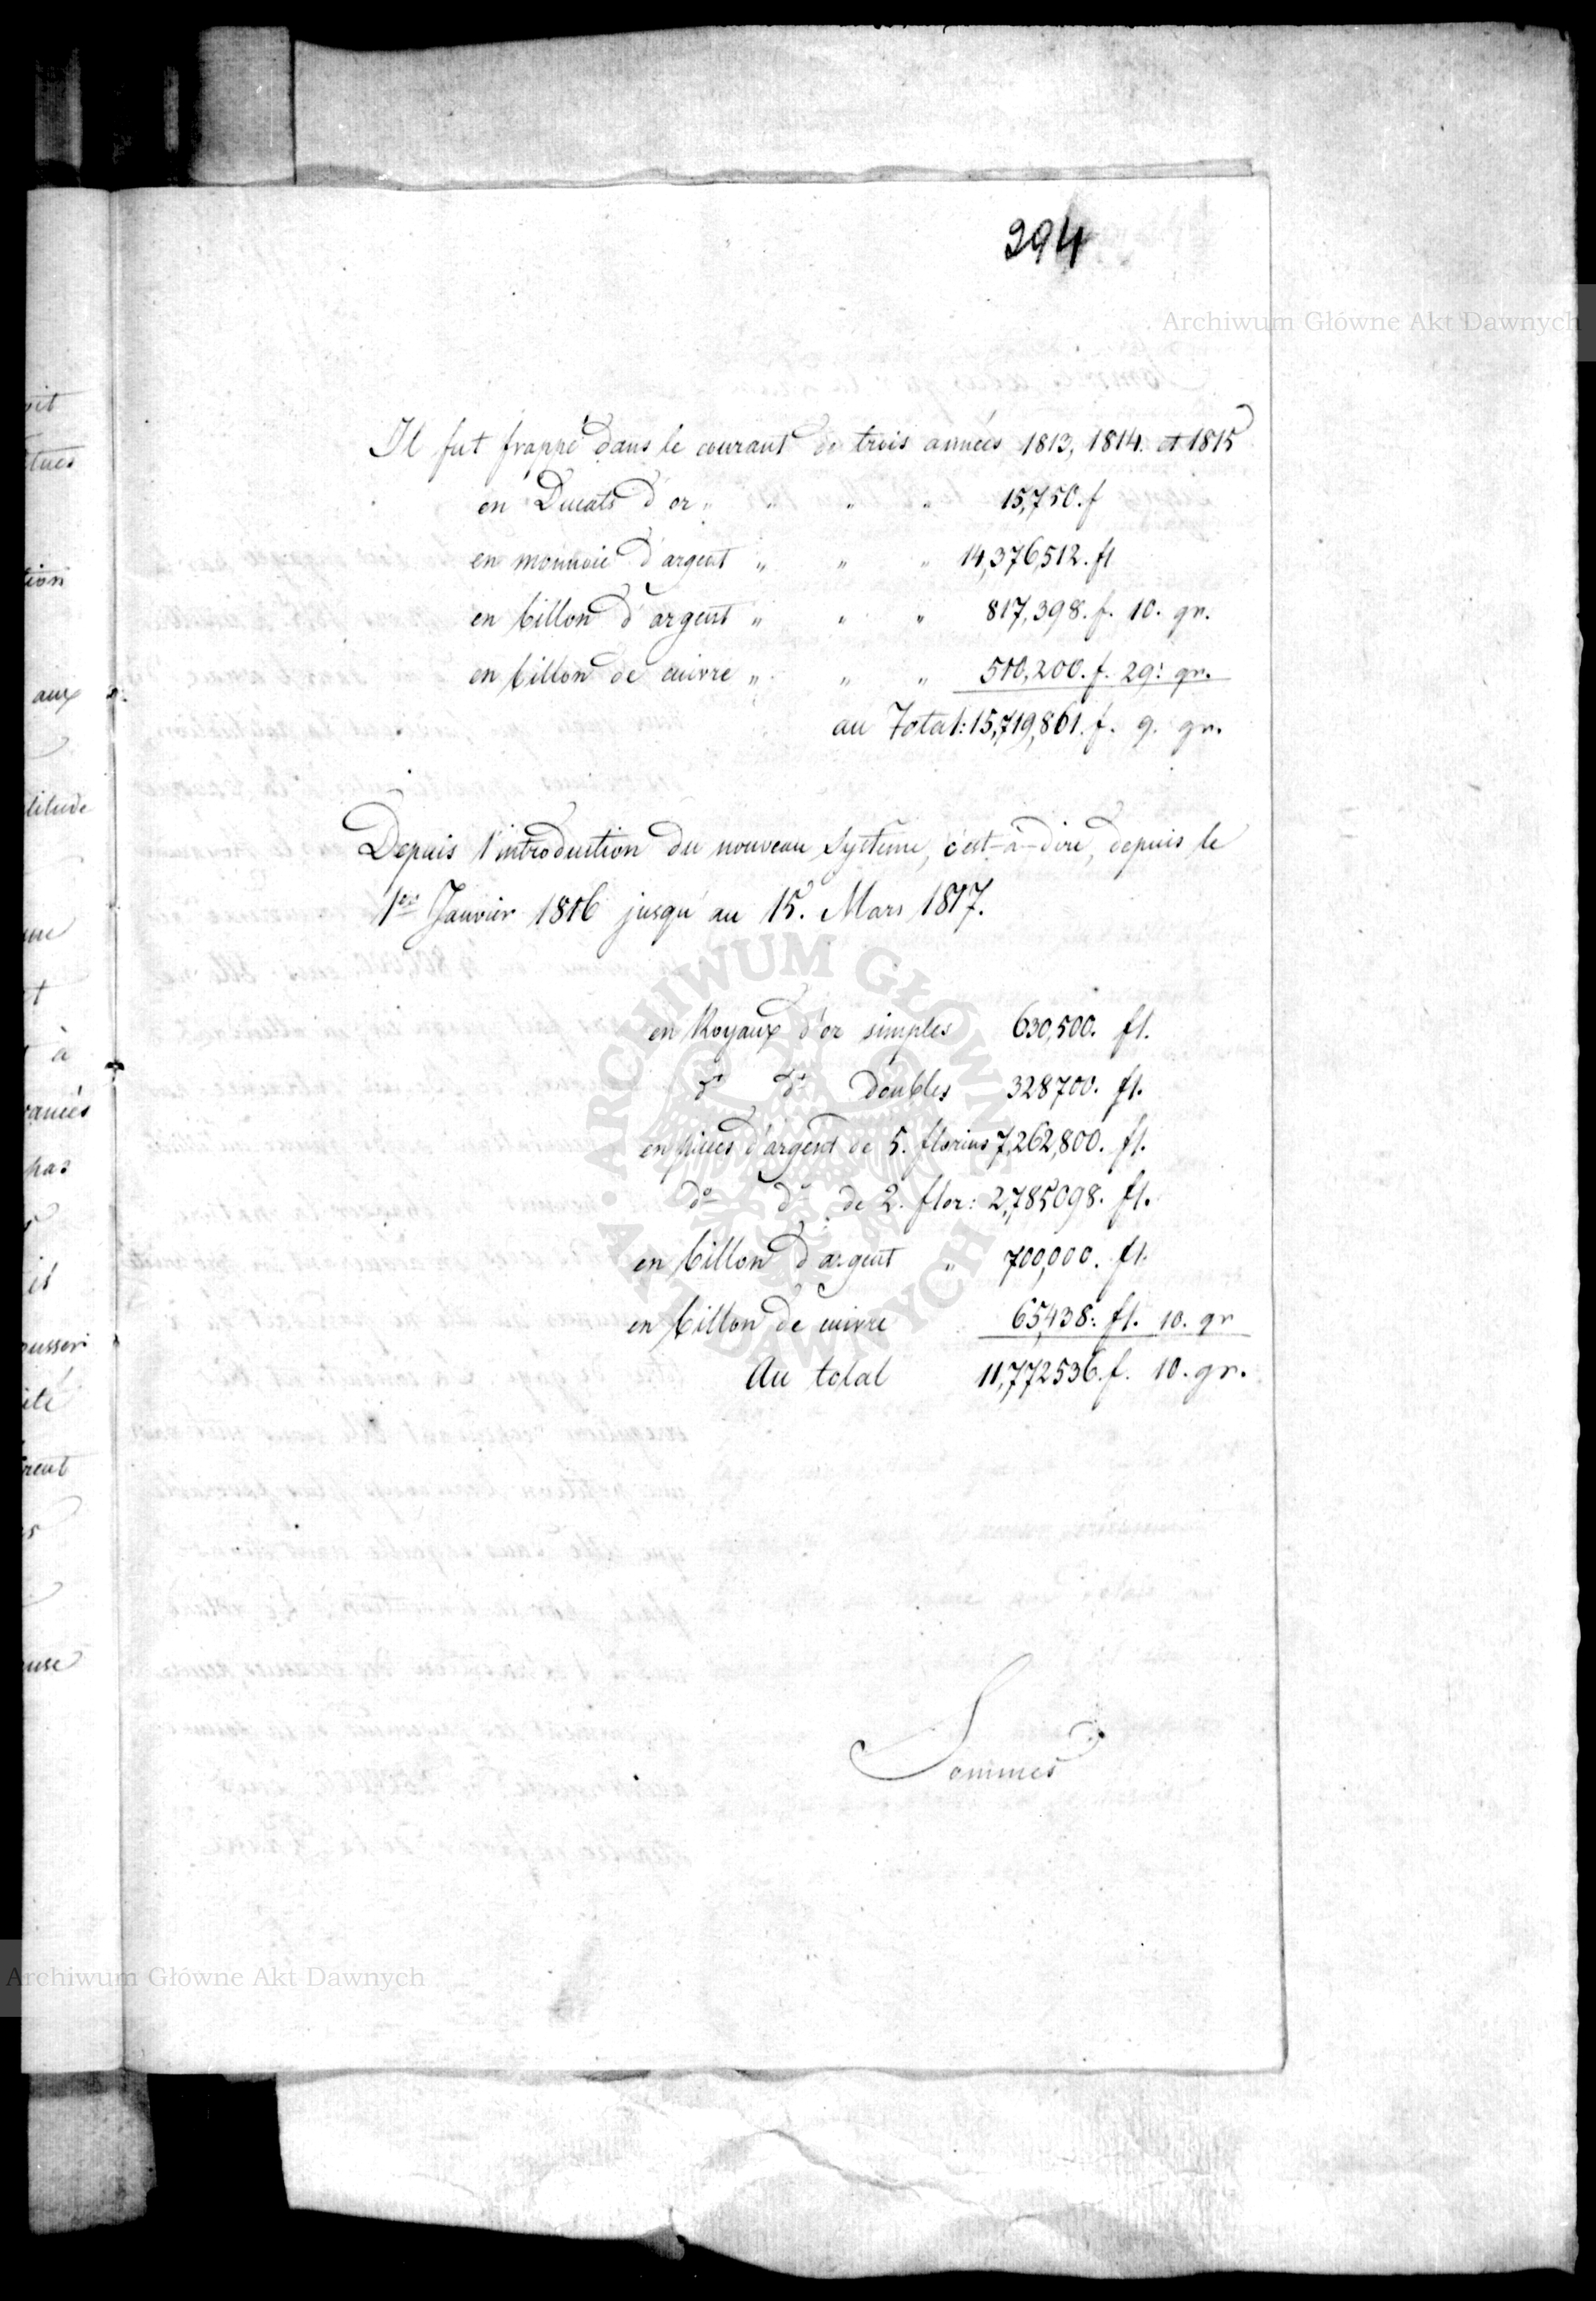 294
Archiwum Główne Akt Dawnych
Il fut frappé dans le courant de trois années 1813, 1814. et 1815
en Ducats d'or „ „ „ „ 15,750. f
en monnoie d'argent „ „ „ 14,376,512. fl
en billon d'argent „ „ „ 817,398. f. 10. gr.
en billon de cuivre „ „ „ 510,200. f. 29: gr.
au Total: 15,719,861. f. 9. gr.
Depuis l'introduction du nouveau Système, c'est-à-dire, depuis le
1er Janvier 1816 jusqu'au 15. Mars 1817.
en Royaux d'or simples 630,500. fl.
do do doubles 328700. fl.
en pièces d'argent de 5. florins 7,262,800. fl.
do do de 2. flor: 2,785098. fl.
en billon d'argent „ 700,000. fl.
en billon de cuivre 65,438: fl. 10. gr
Au total 11,772536. f. 10. gr.
Sommes
ARCHIWUM GŁÓWNE AKT DAWNYCH
Archiwum Główne Akt Dawnych